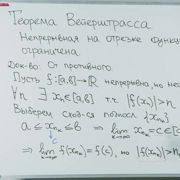 Теорема Вейерштрасса
Непрерывная на отрезке функ
ограничена
Док-во: От противного
Пусть f:[a,b]→ℝ непрерывна, но нео
∀n ∃ x_n∈[a,b] т.ч. |f(x_n)|>n
Выберем сход-ся подпосл {x_{n_k}}
a ≤ x_{n_k} ≤ b ⇒ lim_{k→∞} x_{n_k} = c∈[a
c
⇒ lim_{k→∞} f(x_{n_k}) = f(c), но |f(x_{n_k})|>n